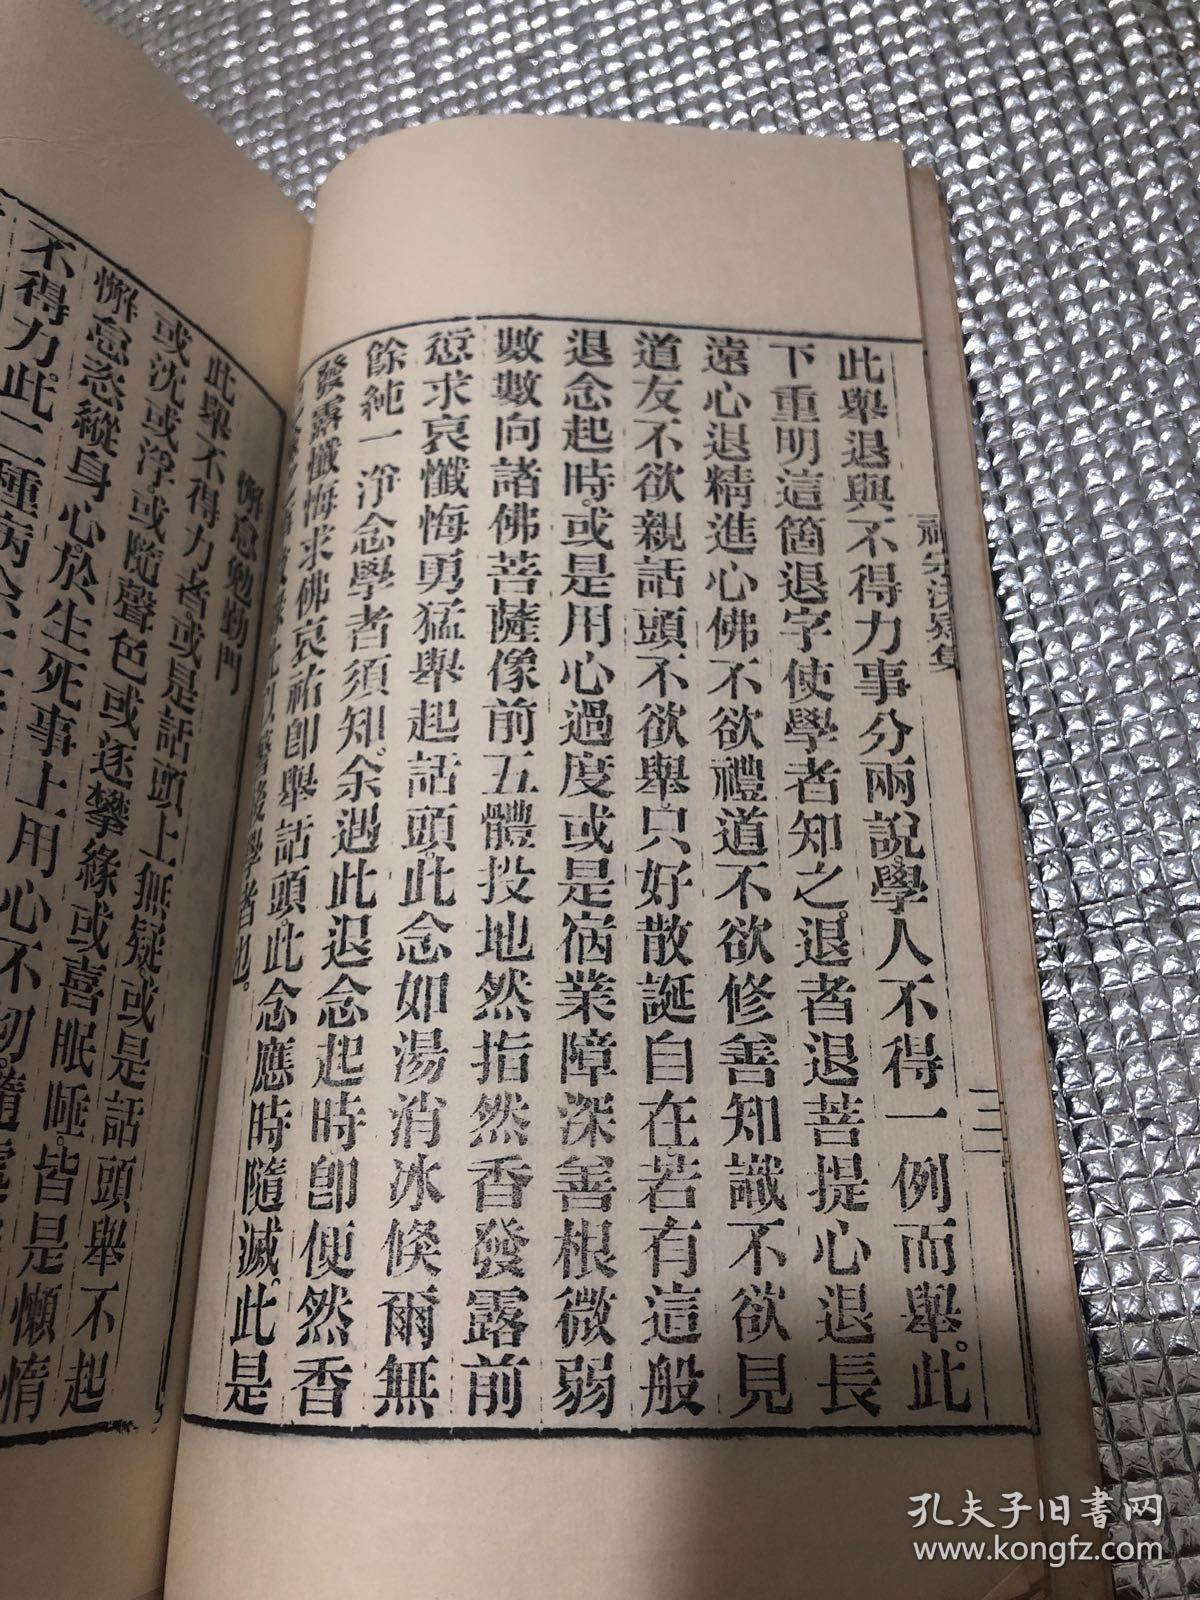 禪宗決疑集
三
此舉退與不得力事分兩說。學人不得一例而舉。此
下重明這箇退字使學者知之。退者退菩提心退長
遠心退精進心佛不欲禮道不欲修善知識不欲見
道友不欲親話頭不欲舉只好散誕自在。若有這般
退念起時。或是用心過度或是宿業障深善根微弱
數數向諸佛菩薩像前五體投地然指然香發露前
愆求哀懺悔勇猛舉起話頭。此念如湯消冰倏爾無
餘純一淨念學者須知。余遇此退念起時卽便然香
發露懺悔求佛哀祐卽舉話頭。此念應時隨滅。此是
學者也。
懈怠勉勤門
此舉不得力者。或是話頭上無疑。或是話頭舉不起
或沈或浮。或隨聲色或逐攀緣或喜眠睡。皆是懶惰
懈怠恣縱身心。於生死事上用心不切。隨
不得力。此二種病余